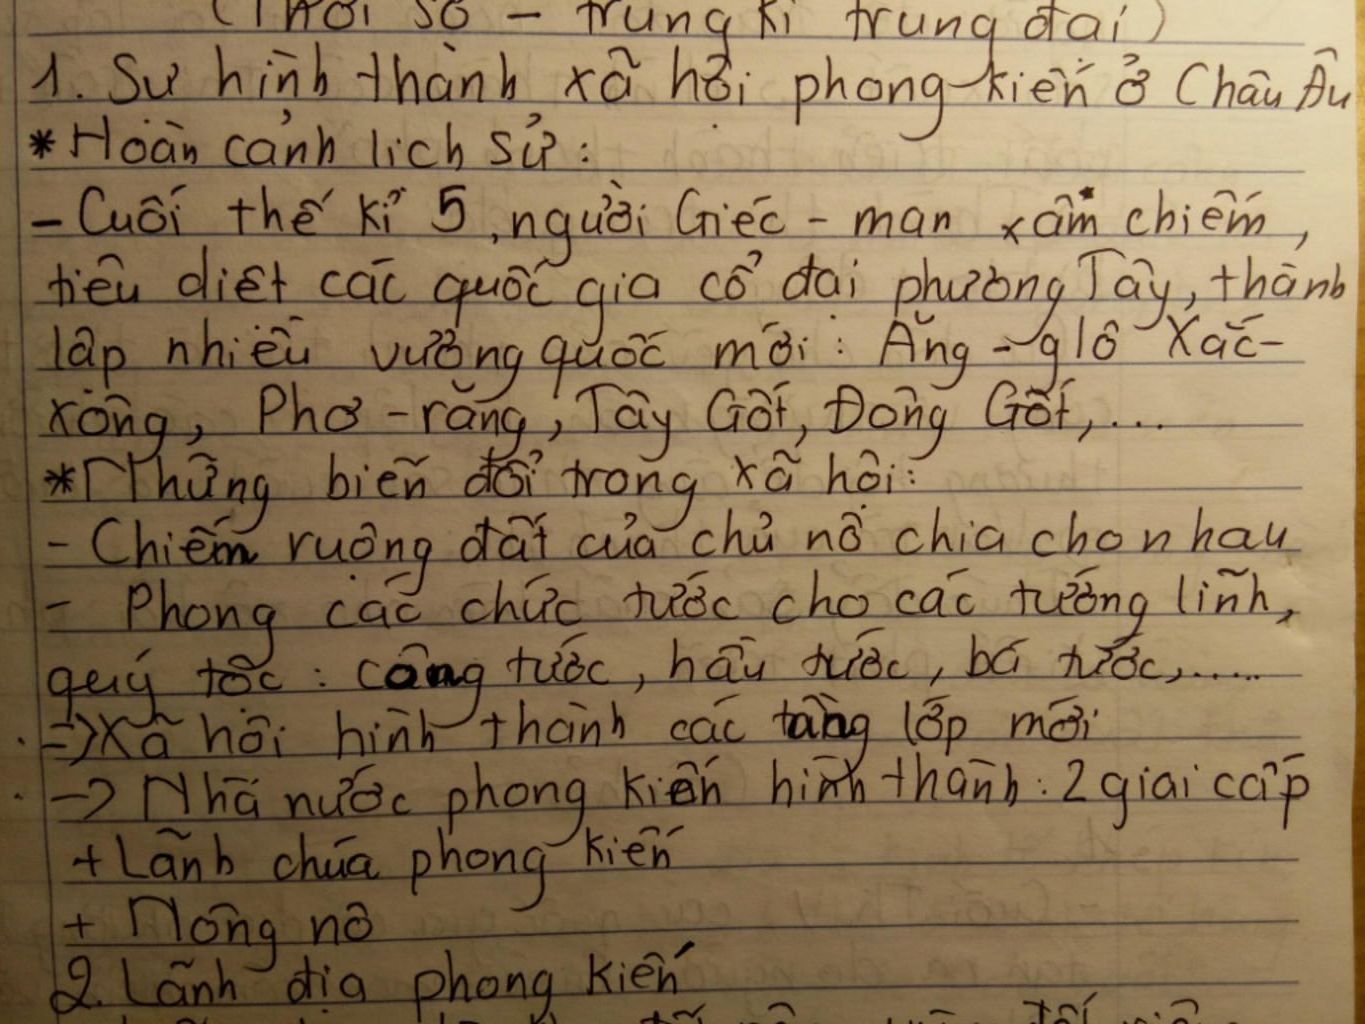 (Thời sơ - trung kì trung đại)
1. Sự hình thành xã hội phong kiến ở Châu Âu
* Hoàn cảnh lịch sử:
- Cuối thế kỉ 5, người Giéc - man xâm chiếm,
tiêu diệt các quốc gia cổ đại phương Tây, thành
lập nhiều vương quốc mới: Ăng - glô Xắc-
xông, Phơ - răng, Tây Gốt, Đông Gốt,...
* Những biến đổi trong xã hội:
- Chiếm ruộng đất của chủ nô chia cho nhau
- Phong các chức tước cho các tướng lĩnh,
quý tộc: công tước, hầu tước, bá tước,.....
=> Xã hội hình thành các tầng lớp mới
-> Nhà nước phong kiến hình thành: 2 giai cấp
+ Lãnh chúa phong kiến
+ Nông nô
2. Lãnh địa phong kiến